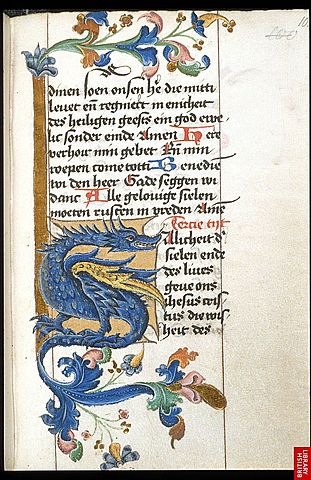 dinen soen onsen he die mitti
leuet en regniert in enicheit
des heiligen geests een god ewe
lic sonder ende Amen Here
verhoer min gebet En min
roepen come totti Benedie
wi den heer Gade seggen wi
danc Alle gelouige sielen
moeten rusten in vreden Ame
Tercie tijt
Salicheit d
sielen ende
des liues
geue ons
ihesus cris
tus die wis
heit des
BRITISH
LIBRARY